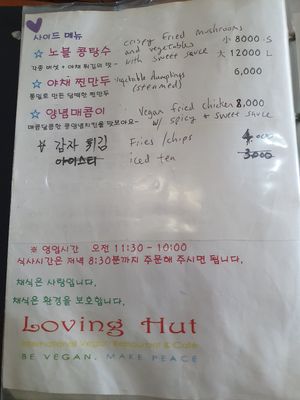 사이드 메뉴
☆ 노블 콩탕수 crispy fried mushrooms and vegetables with sweet sauce 小 8000 :S
각종 버섯 + 야채 튀김의 맛~ 大 12000 L
☆ 야채 찐만두 vegetable dumplings (steamed) 6,000
통밀로 만든 담백한 찐만두
☆ 양념매콤이 Vegan fried chicken w/ spicy + sweet sauce 8,000
매콤달콤한 콩양념치킨을 맛보아요~
감자 튀김 Fries / chips 4,000
아이스티 iced tea 3,000
※ 영업시간 오전 11:30 - 10:00
식사시간은 저녁 8:30분까지 주문해 주시면 됩니다.
채식은 사랑입니다.
채식은 환경을 보호합니다.
Loving Hut
International Vegan Restaurant & Cafe
BE VEGAN, MAKE PEACE